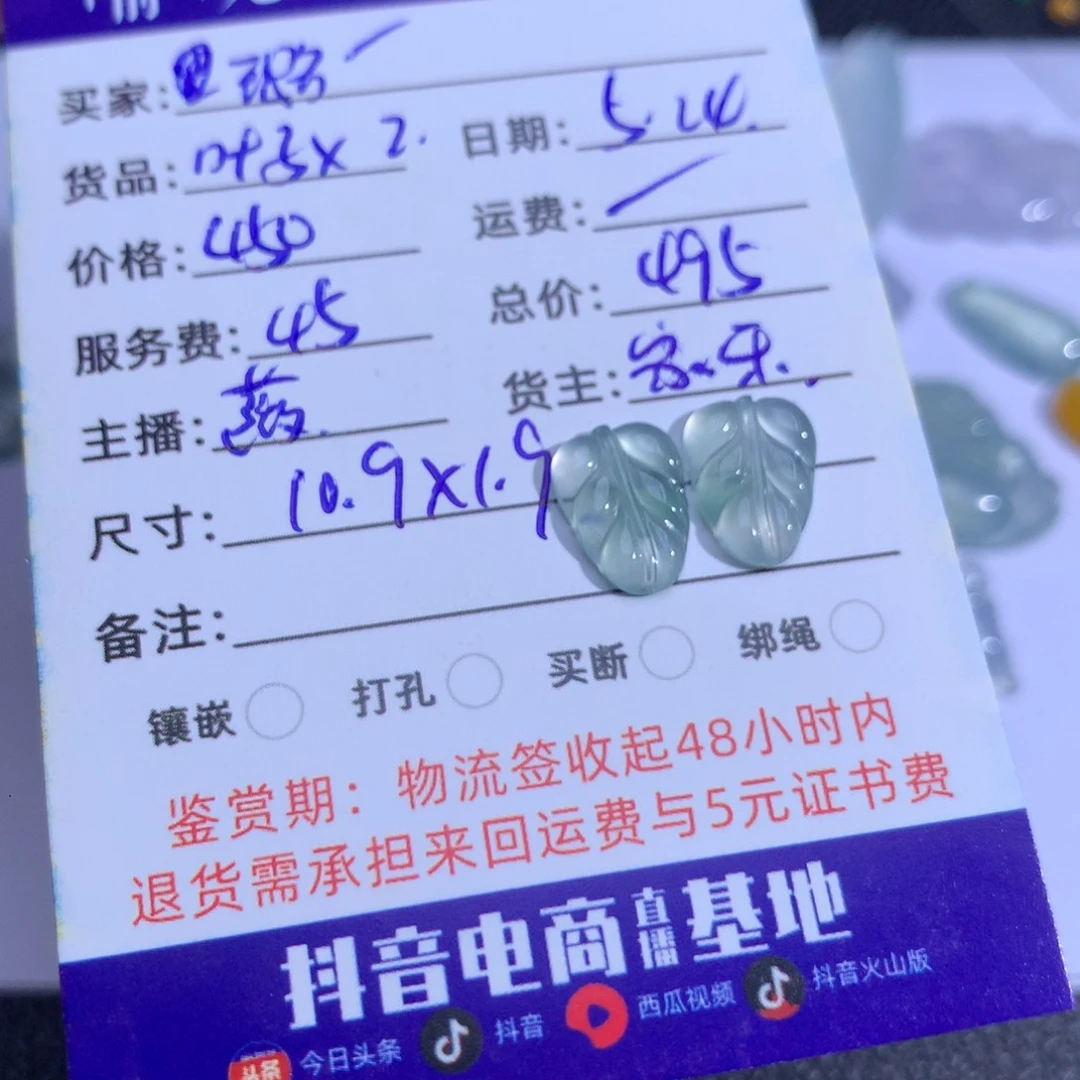 买家:
货品: 叶子x 2. 日期: 5.24.
价格: 450 运费: /
服务费: 45 总价: 495
主播: 货主:
尺寸: 10.9x1.9
备注:
镶嵌 打孔 买断 绑绳
鉴赏期：物流签收起48小时内
退货需承担来回运费与5元证书费
抖音电商直播基地
头条 今日头条 抖音 西瓜视频 抖音火山版